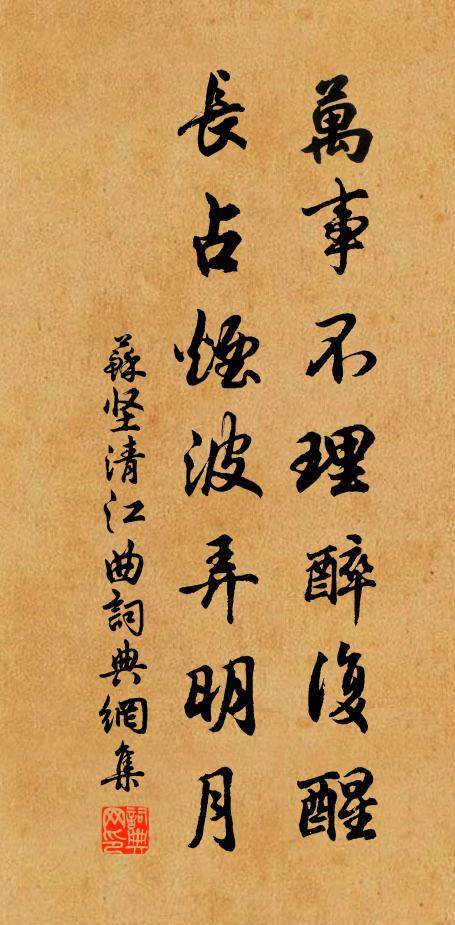 萬事不理醉復醒
長占煙波弄明月
蘇堅清江曲詞典網集
詞典
网印